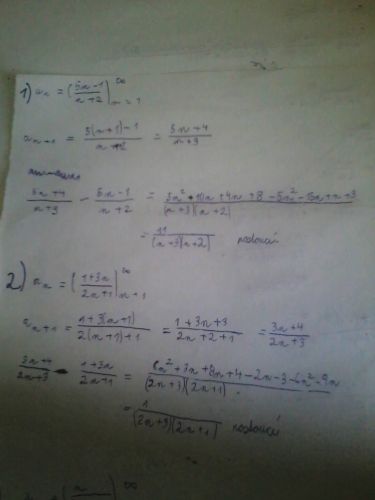 1) aₙ = (5n-1 / n+2)∞ n=1
aₙ₊₁ = 5(n+1)-1 / n+2 = 5n+4 / n+3
5n+4 / n+3 - 5n-1 / n+2 = 5n²+10n+4n+8-5n²-15n+n+3 / (n+3)(n+2)
= 11 / (n+3)(n+2) rostoucí
2) aₙ = (1+3n / 2n+1)∞ n=1
aₙ₊₁ = 1+3(n+1) / 2(n+1)+1 = 1+3n+3 / 2n+2+1 = 3n+4 / 2n+3
3n+4 / 2n+3 - 1+3n / 2n+1 = 6n²+3n+8n+4-2n-3-6n²-9n / (2n+3)(2n+1)
= 1 / (2n+3)(2n+1) rostoucí